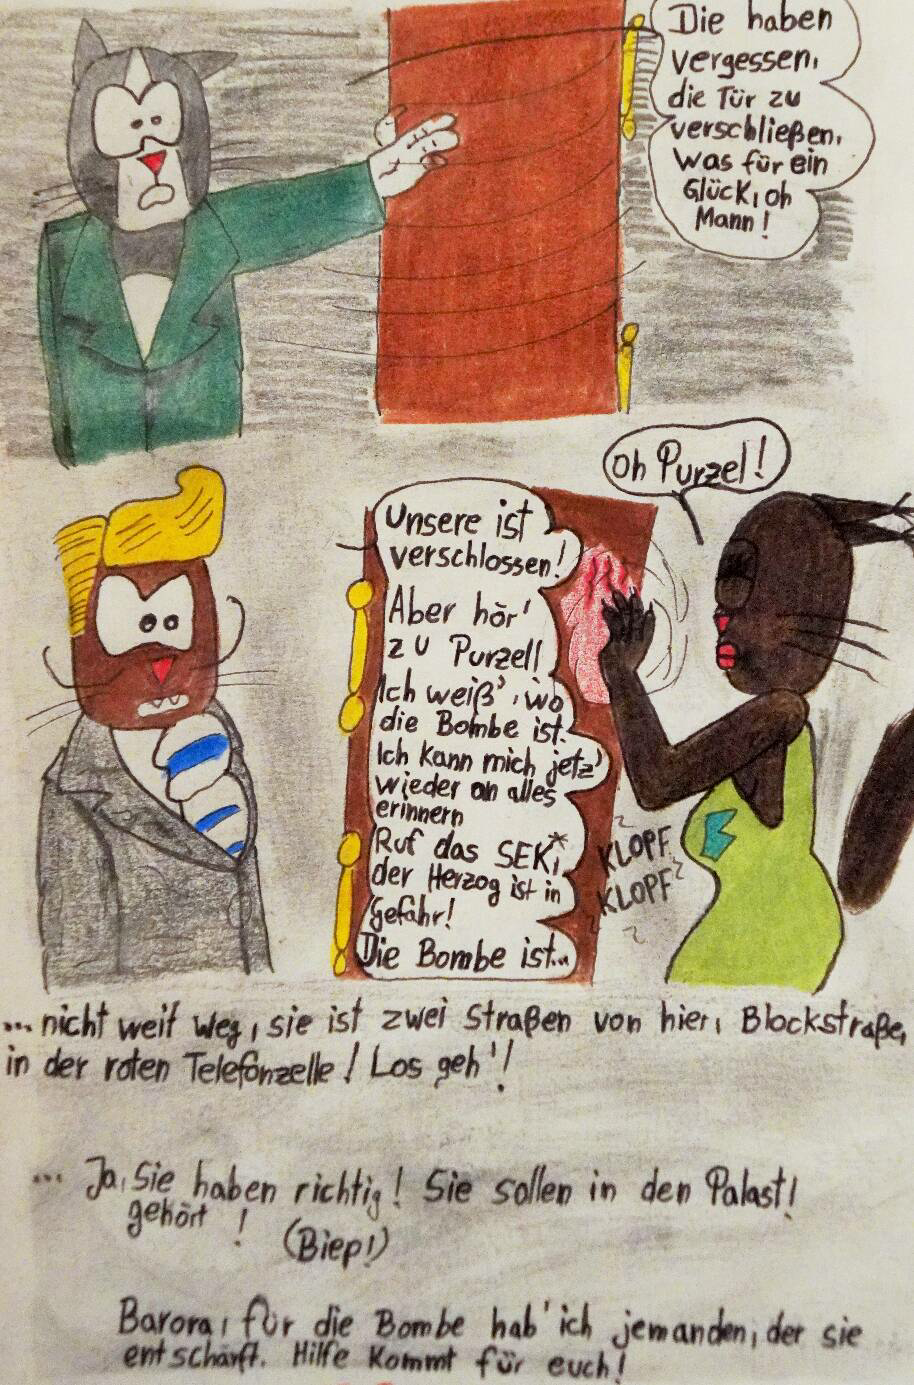 Die haben
vergessen,
die Tür zu
verschließen.
Was für ein
Glück, oh
Mann!
Oh Purzel!
Unsere ist
verschlossen!
Aber hör'
zu Purzel!
Ich weiß', wo
die Bombe ist.
Ich kann mich jetz'
wieder an alles
erinnern
Ruf das SEK*,
der Herzog ist in
Gefahr!
Die Bombe ist...
KLOPF
KLOPF
... nicht weit weg, sie ist zwei Straßen von hier, Blockstraße,
in der roten Telefonzelle! Los geh'!
... Ja, Sie haben richtig! Sie sollen in den Palast!
gehört !
(Biep!)
Barora, für die Bombe hab' ich jemanden, der sie
entschärft. Hilfe kommt für euch!